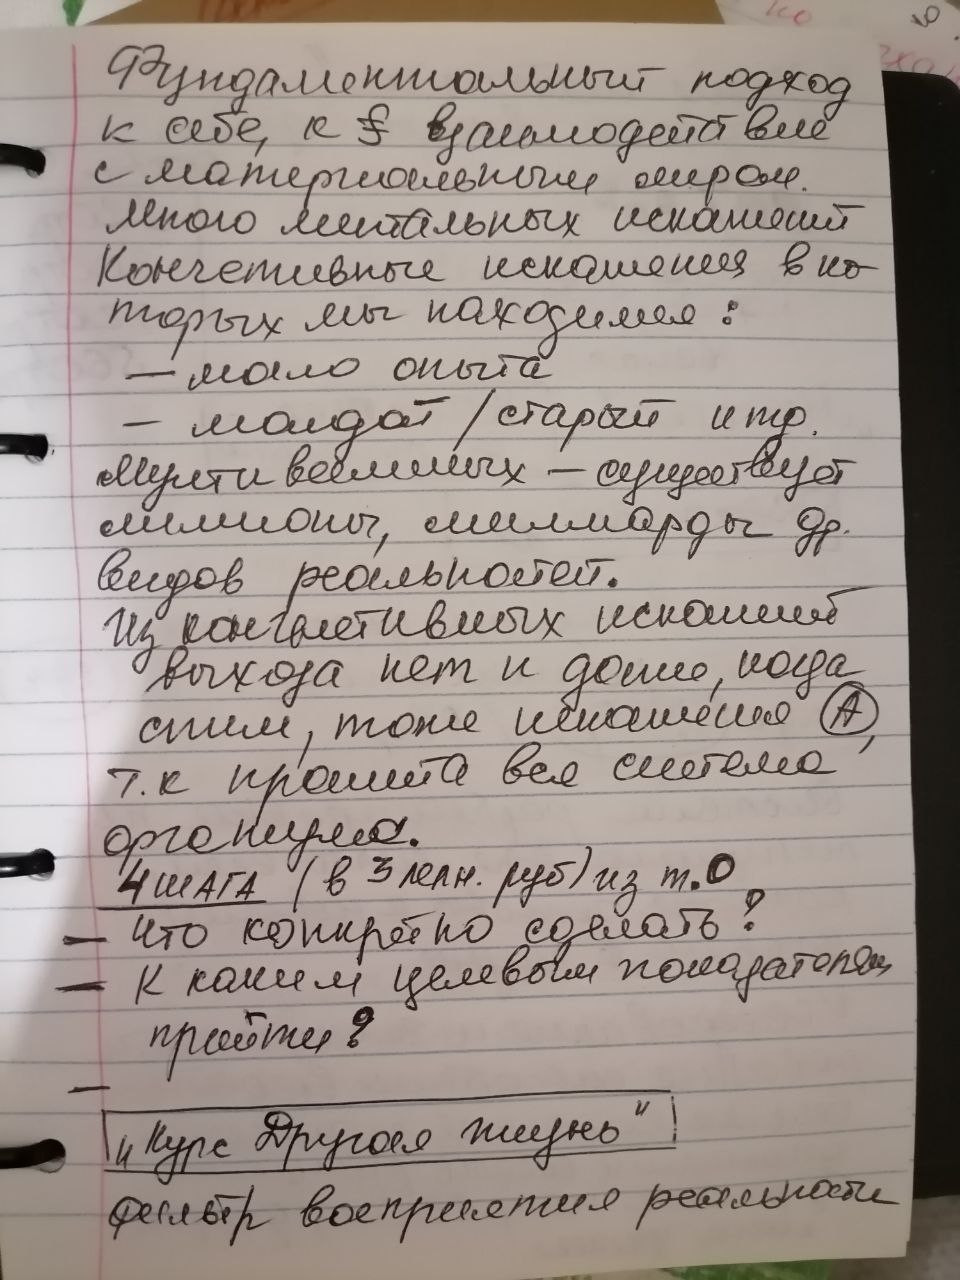 Фундаментальный подход
к себе, к взаимодействие
с материальным миром.
Много ментальных искажений
Конгетивные искажения в ко-
торых мы находимся:
— мало опыта
— молодой / старый и тр.
Мультивселенных — существует
милионы, миллиарды др.
видов реальностей.
Из конгнетивных искажений
выхода нет и даже, когда
спим, тоже искажения (А),
т.к прошита вся система
организма.
4 ШАГА (в 3 млн. руб) из т.О
— Что конкретно сделать?
— К каким целевым показателям
прийти?
—
„Курс Другая жизнь"
Фильтр восприятия реальности